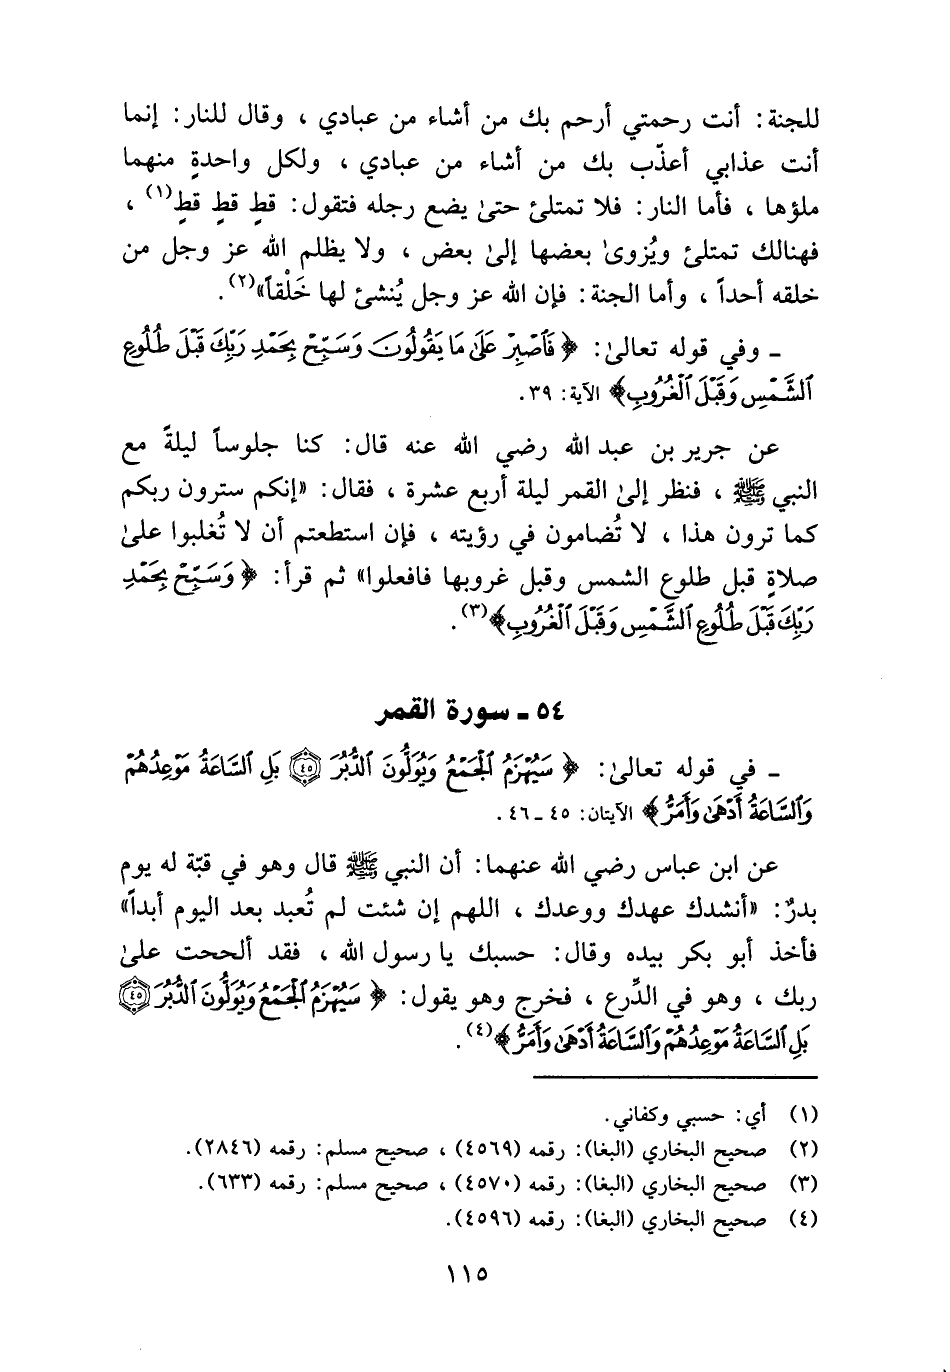 للجنة: أنت رحمتي أرحم بك من أشاء من عبادي ، وقال للنار: إنما
أنت عذابي أعذّب بك من أشاء من عبادي ، ولكل واحدةٍ منهما
ملؤها ، فأما النار: فلا تمتلئ حتىٰ يضع رجله فتقول: قطٍ قطٍ قطٍ(١) ،
فهنالك تمتلئ ويُزوىٰ بعضها إلىٰ بعض ، ولا يظلم الله عز وجل من
خلقه أحداً ، وأما الجنة: فإن الله عز وجل يُنشئ لها خَلْقاً»(٢).
ـ وفي قوله تعالىٰ: ﴿فَٱصْبِرْ عَلَىٰ مَا يَقُولُونَ وَسَبِّحْ بِحَمْدِ رَبِّكَ قَبْلَ طُلُوعِ
ٱلشَّمْسِ وَقَبْلَ ٱلْغُرُوبِ﴾ الآية: ٣٩.
عن جرير بن عبد الله رضي الله عنه قال: كنا جلوساً ليلةً مع
النبي ﷺ ، فنظر إلىٰ القمر ليلة أربع عشرة ، فقال: «إنكم سترون ربكم
كما ترون هذا ، لا تُضامون في رؤيته ، فإن استطعتم أن لا تُغلبوا علىٰ
صلاةٍ قبل طلوع الشمس وقبل غروبها فافعلوا» ثم قرأ: ﴿وَسَبِّحْ بِحَمْدِ
رَبِّكَ قَبْلَ طُلُوعِ ٱلشَّمْسِ وَقَبْلَ ٱلْغُرُوبِ﴾(٣).
٥٤ ـ سورة القمر
ـ في قوله تعالىٰ: ﴿سَيُهْزَمُ ٱلْجَمْعُ وَيُوَلُّونَ ٱلدُّبُرَ ۝٤٥ بَلِ ٱلسَّاعَةُ مَوْعِدُهُمْ
وَٱلسَّاعَةُ أَدْهَىٰ وَأَمَرُّ﴾ الآيتان: ٤٥ ـ ٤٦.
عن ابن عباس رضي الله عنهما: أن النبي ﷺ قال وهو في قبّة له يوم
بدرٌ: «أنشدك عهدك ووعدك ، اللهم إن شئت لم تُعبد بعد اليوم أبداً»
فأخذ أبو بكر بيده وقال: حسبك يا رسول الله ، فقد ألححت علىٰ
ربك ، وهو في الدِّرع ، فخرج وهو يقول: ﴿سَيُهْزَمُ ٱلْجَمْعُ وَيُوَلُّونَ ٱلدُّبُرَ ۝٤٥
بَلِ ٱلسَّاعَةُ مَوْعِدُهُمْ وَٱلسَّاعَةُ أَدْهَىٰ وَأَمَرُّ﴾(٤).
(١) أي: حسبي وكفاني.
(٢) صحيح البخاري (البغا): رقمه (٤٥٦٩) ، صحيح مسلم: رقمه (٢٨٤٦).
(٣) صحيح البخاري (البغا): رقمه (٤٥٧٠) ، صحيح مسلم: رقمه (٦٣٣).
(٤) صحيح البخاري (البغا): رقمه (٤٥٩٦).
١١٥